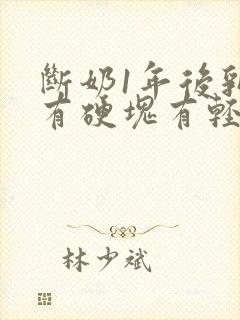 斷奶1年後乳
有硬塊有輕
林少斌